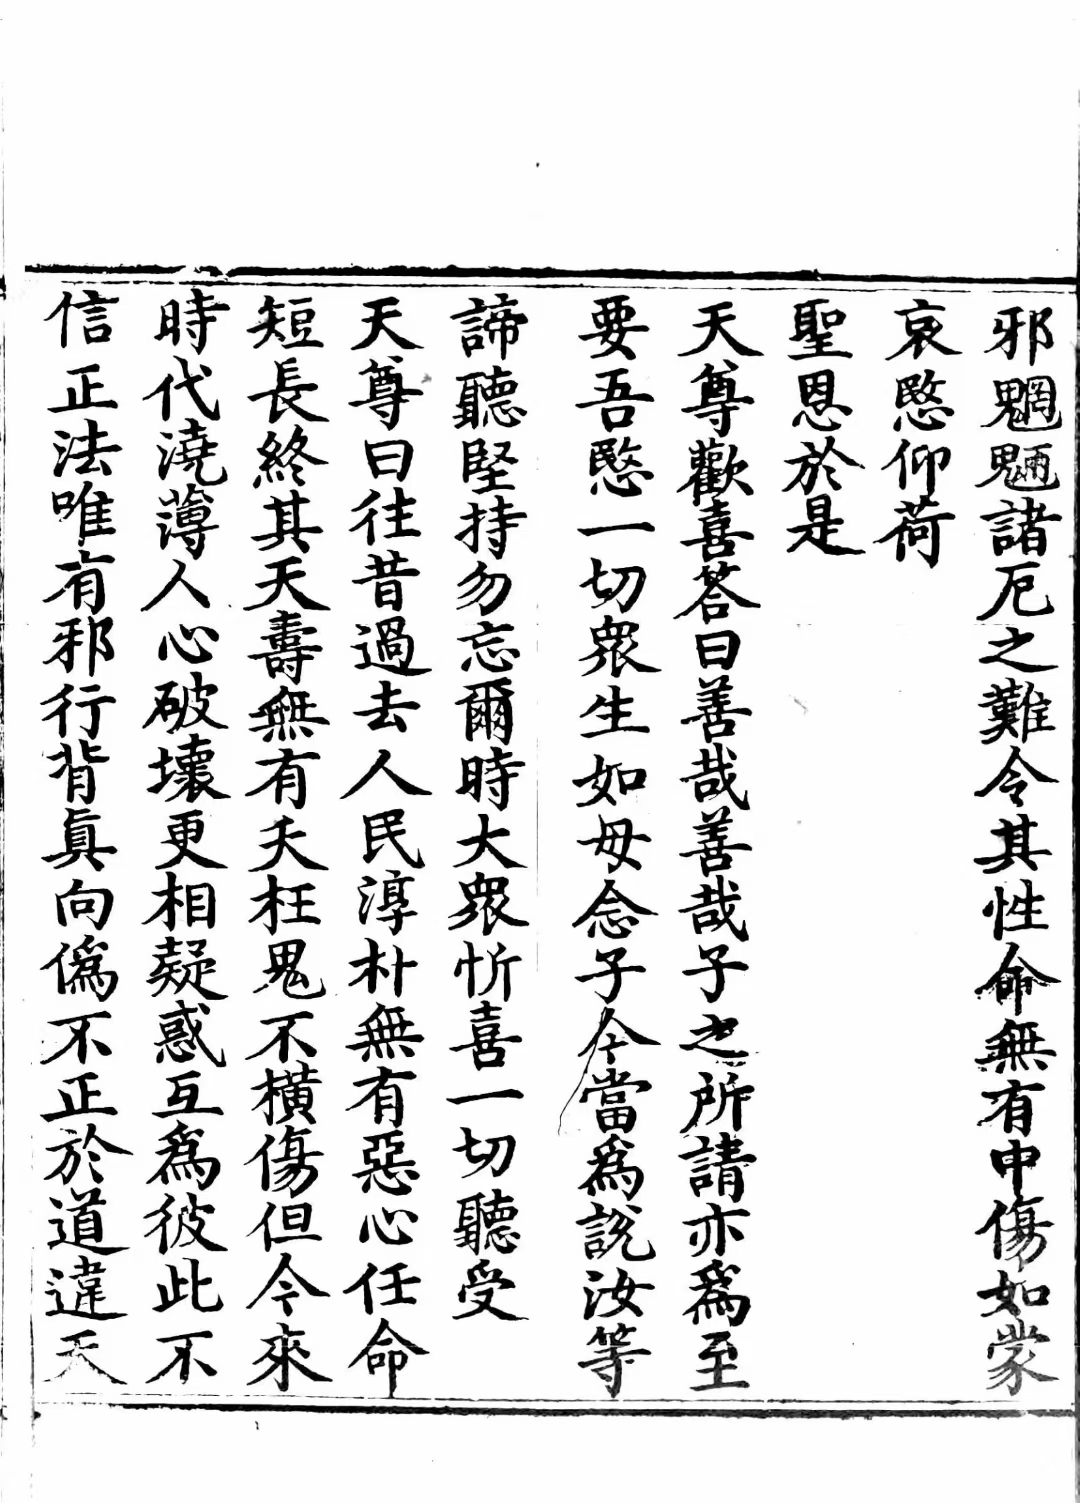 邪魍魎諸厄之難令其性命無有中傷如蒙
哀愍仰荷
聖恩於是
天尊歡喜荅曰善哉善哉子之所請亦爲至
要吾愍一切衆生如母念子今當爲說汝等
諦聽堅持勿忘爾時大衆忻喜一切聽受
天尊曰往昔過去人民淳朴無有惡心任命
短長終其天壽無有夭枉鬼不橫傷但今來
時代澆薄人心破壞更相疑惑互爲彼此不
信正法唯有邪行背眞向僞不正於道違天